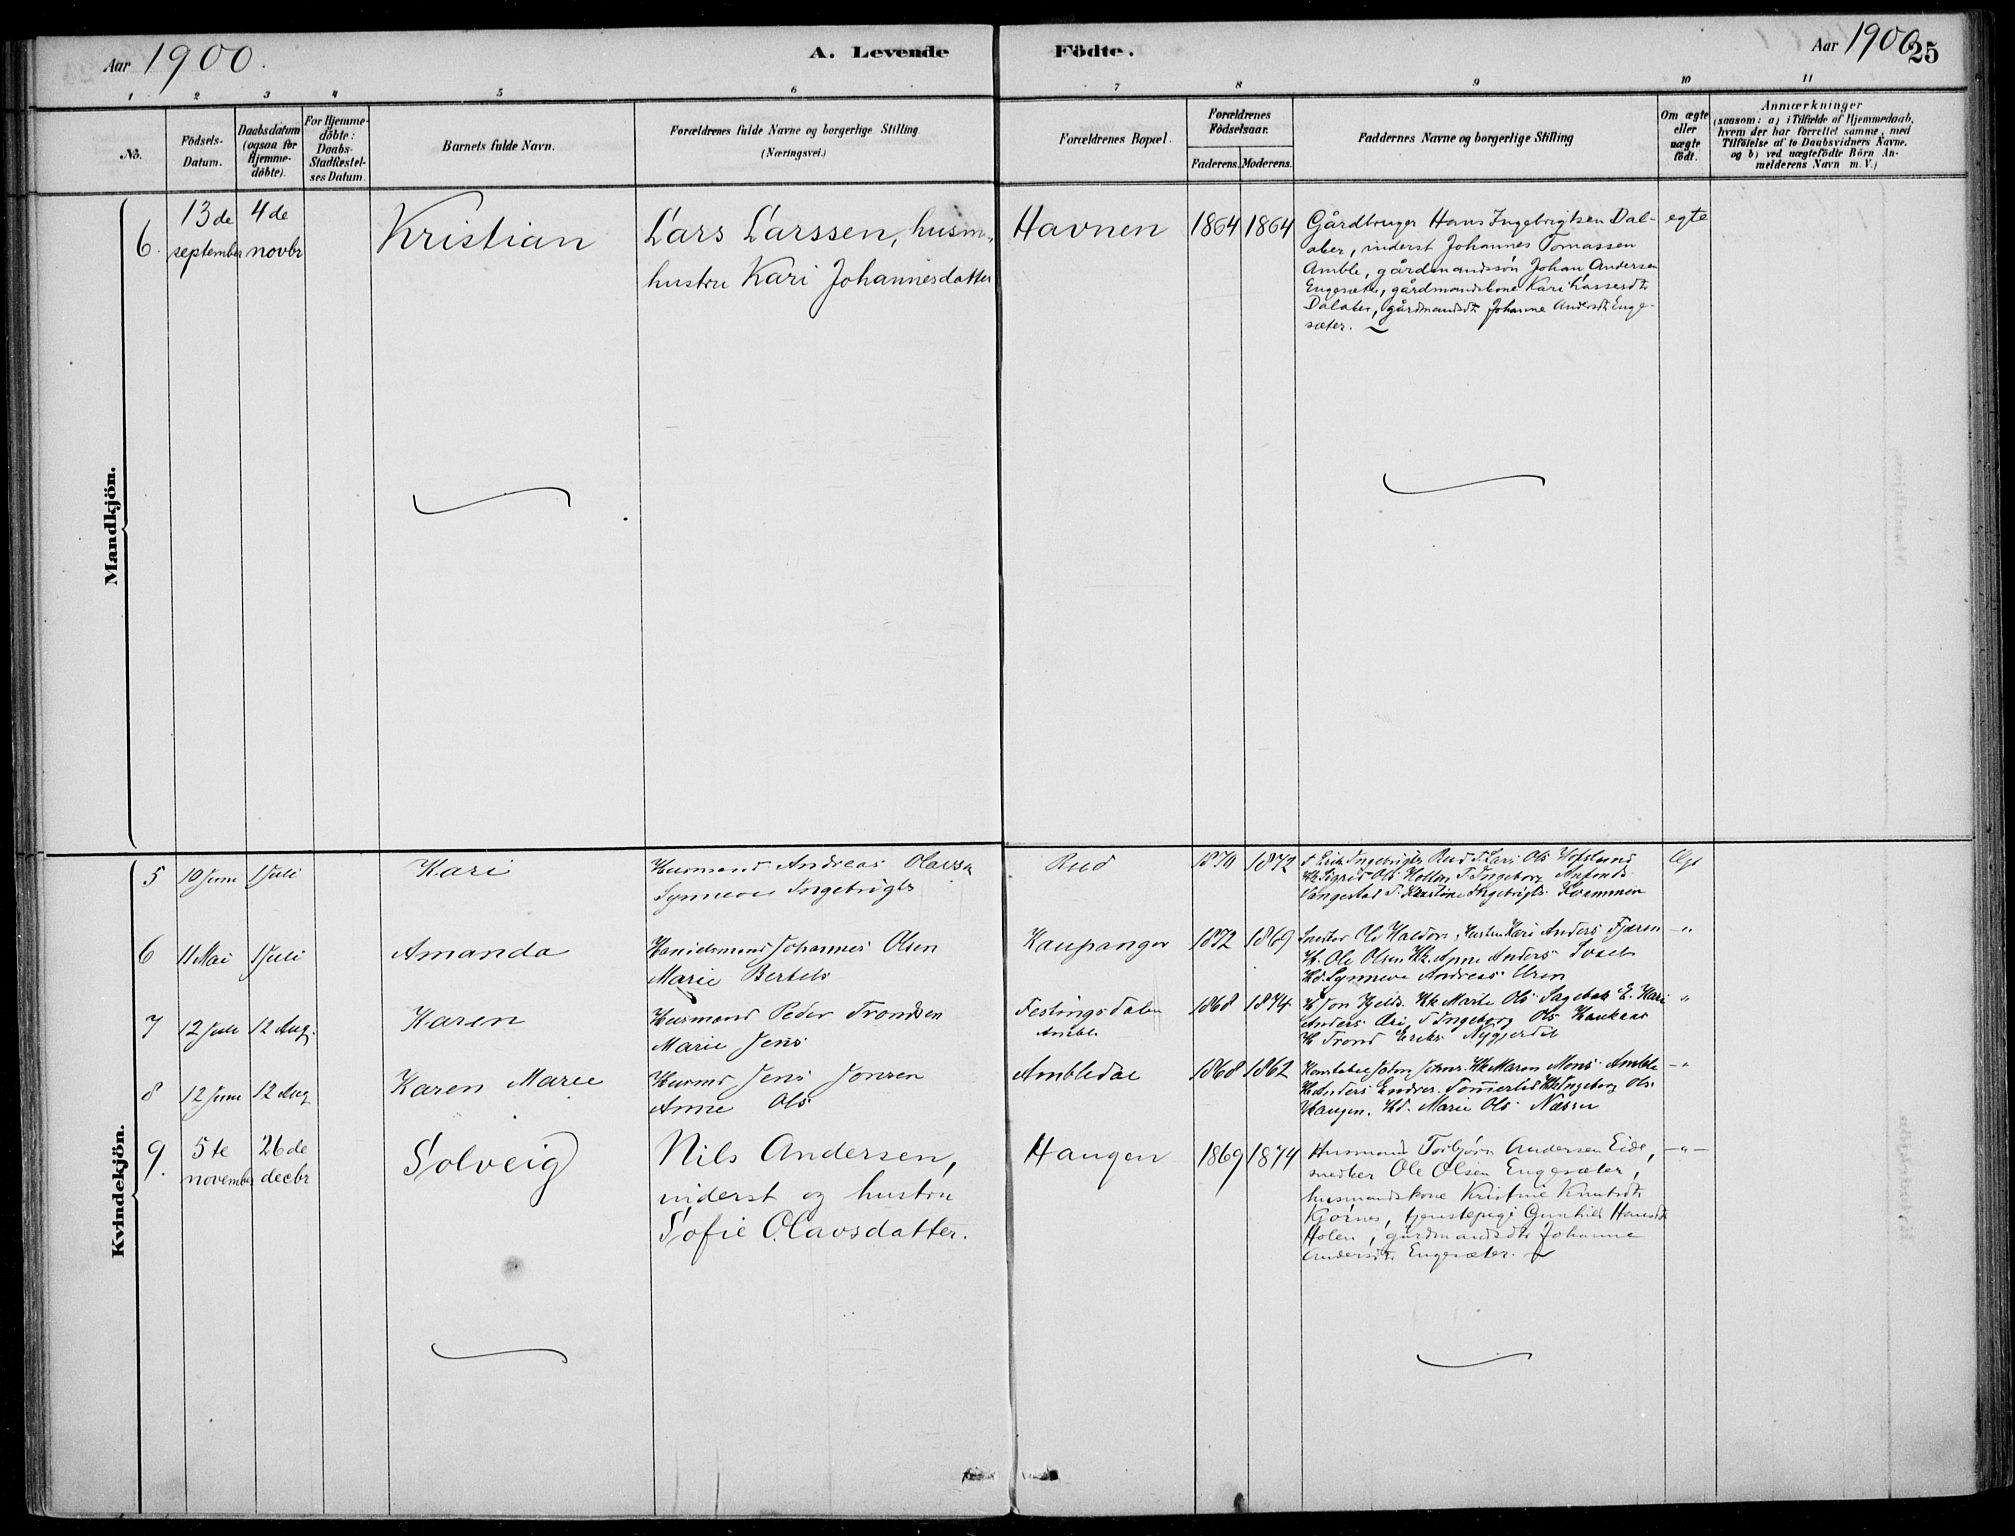 Aar 1900. A. Levende Födte. Aar 1900 25
1 2 3 4 5 6 7 8 9 10 11
No.
Födsels-
Datum.
Daabsdatum
(ogsaa for
Hjemme-
döbte).
For Hjemme-
döbte:
Daabs-
Stadfæstel-
ses Datum.
Barnets fulde Navn.
Forældrenes fulde Navne og borgerlige Stilling
(Næringsvei.)
Forældrenes Bopæl.
Forældrenes
Födselsaar.
Faderens. Moderens.
Faddernes Navne og borgerlige Stilling
Om ægte
eller
uægte
födt.
Anmærkninger
(saasom: a) i Tilfælde af Hjemmedaab,
hvem der har forrettet samme, med
Tilföielse af to Daabsvidners Navne.
og b) ved uægtefödte Börn An-
melderens Navn m. V.)
Mandkjön.
6.
13de
september
4de
novbr
Kristian
Lars Larssen, husm.,
hustru Kari Johannesdatter
Havnen
1864 1864
Gårdbruger Hans Ingebrigtsen Dal-
aker, inderst Johannes Tomassen
Amble, gårdmandssøn Johan Andersen
Engesæter, gårdmandskone Kari Lassesdtr
Dalaker, gårdmandsdtr Johanne Andersdtr Enge-
sæter.
egte
Kvindekjön.
5
10 Juni
1 Juli
Kari
Husmand Andreas Olavsen
Synneve Ingebrigts
Rud
1870 1872
Erik Ingebrigts Rud Lars Ols Hofslund
Sigrid Ols Ingeborg
Vangestad Ingebrigts Kvammen
6
11 Mai
1 Juli
Amanda
Handelsmand Johannes Olsen
Marie Bertels
Kaupanger
1872 1869
Ole Haldors, Hustru Kari Anders Fjæren
H. Ole Olsen Hk. Anne Anders
Synneve Andreas Uren
-"
7
12 Juli
12 Aug.
Karen
Husmand Peder Trondsen
Marie Jens
Festingsdalen
Amble
1868 1874
Jon Hk Marte Ols Sagebak E. Kari
Anders Eri Ingeborg Ols Haukaas
H Trond Eriks Nygjerdet
"
8
12 Juni
12 Aug
Karen Marie
Husmd Jens Jonsen
Anne Ols
Ambledal
1868 1862
John Johns. Hk Maren Mons Amble
Anders Endres. Ingeborg Ols
Haugen. Marie Ols Næssen
-"
9.
5te
november
26de
decbr
Solveig
Nils Andersen,
inderst og hustru
Sofie Olavsdatter.
Haugen
1869 1874
Husmand Torbjørn Andersen Eide,
snedker Ole Olsen Engesæter,
husmandskone Kristine Knutsdtr
Gjørnes, tjenestepige Gunhild Hansdtr
Holen, gårdmandsdtr Johanne
Andersdtr Engesæter.
-"-